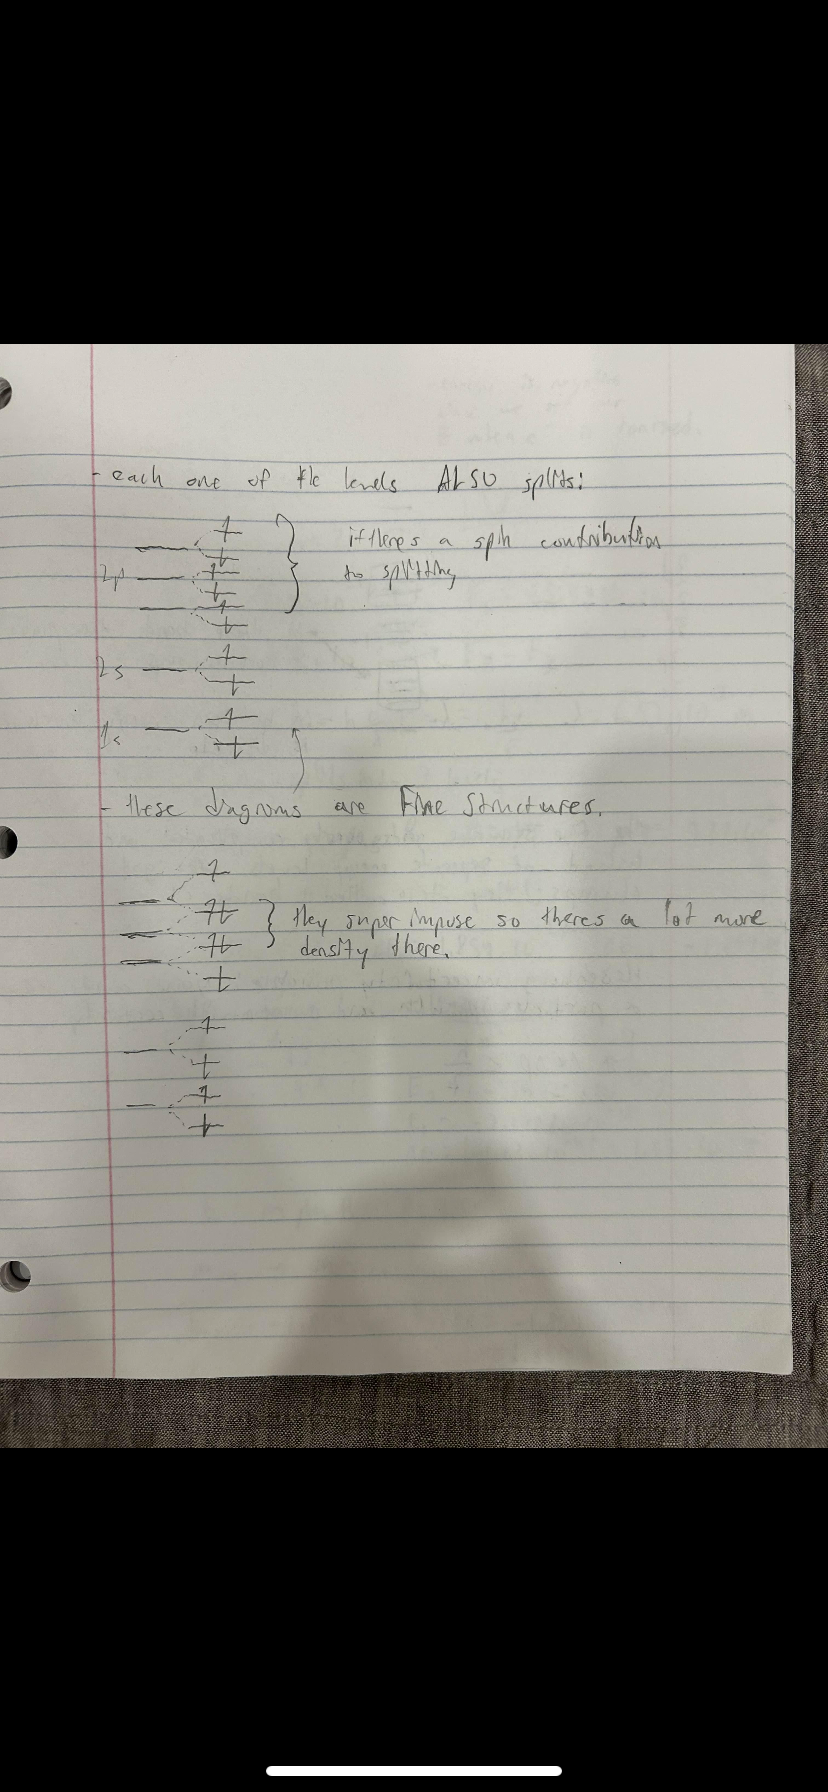 - each one of the levels ALSO splits:
if theres a spin contribution
to splitting
2p
2s
1s
- these diagrams are Fine Structures.
they super impose so theres a lot more
density there.